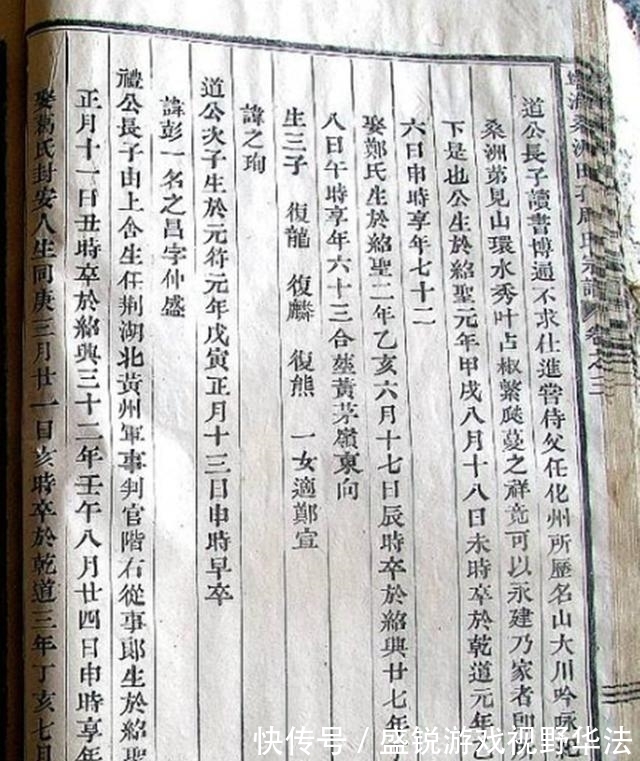 寧海桑洲田孔周氏宗譜 卷之二
道公長子讀書博通不求仕進嘗侍父任化州所歷名山大川吟咏
桑洲弟見山環水秀叶占椒繁瓞蔓之祥竟可以永建乃家者即
下是也公生於紹聖元年甲戌八月十八日未時卒於乾道元年乙
六日申時享年七十二
娶鄭氏生於紹聖二年乙亥六月十七日辰時卒於紹興廿七年
八日午時享年六十三合塟黃茅嶺東向
生三子 復龍 復麟 復熊 一女適鄭宣
諱之珣
道公次子生於元符元年戊寅正月十三日申時早卒
諱彭一名之昌字仲盛
禮公長子由上舍生任荆湖北黃州軍事判官階右從事郎生於紹聖
正月十一日丑時卒於紹興三十二年壬午八月廿四日申時享年
娶葛氏封安人生同庚三月廿一日亥時卒於乾道三年丁亥七月
快传号 / 盛锐游戏视野华法